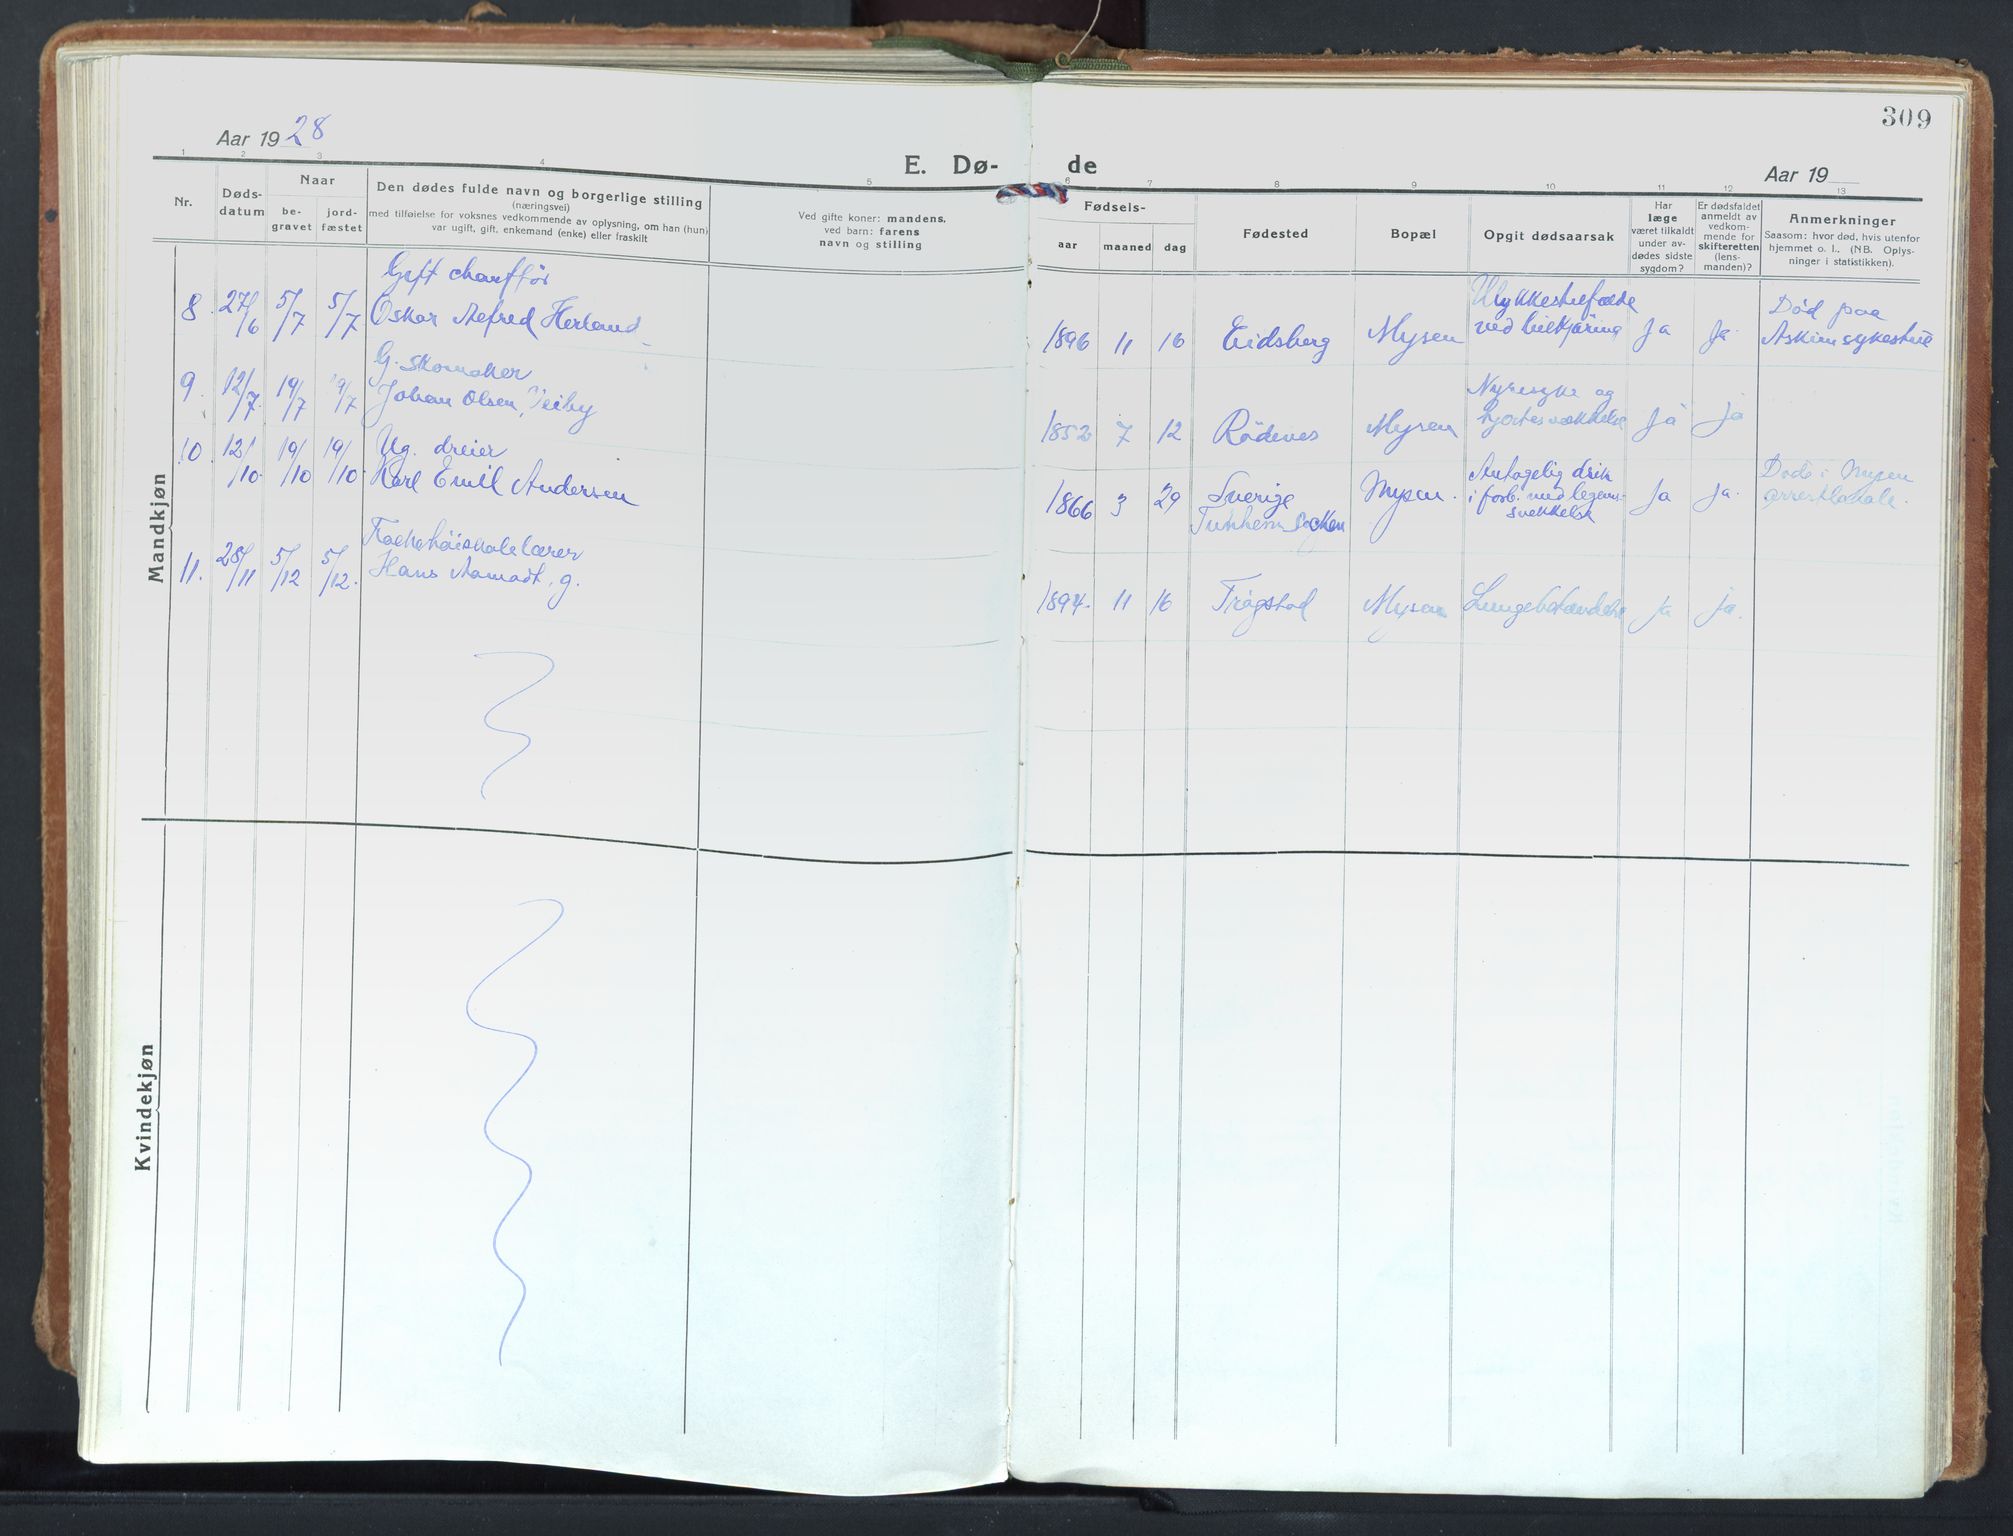 309
Aar 1928
E. Dø- de
Aar 19
1 2 3 4 5 6 7 8 9 10 11 12 13
Nr.
Døds-
datum
Naar
be-
gravet
jord-
fæstet
Den dødes fulde navn og borgerlige stilling
(næringsvei)
med tilføielse for voksnes vedkommende av oplysning, om han (hun)
var ugift, gift, enkemand (enke) eller fraskilt
Ved gifte koner: mandens,
ved barn: farens
navn og stilling
Fødsels-
aar maaned dag
Fødested
Bopæl
Opgit dødsaarsak
Har
læge
været tilkaldt
under av-
dødes sidste
sygdom?
Er dødsfaldet
anmeldt av
vedkom-
mende for
skifteretten
(lens-
manden)?
Anmerkninger
Saasom: hvor død, hvis utenfor
hjemmet o. l., (NB. Oplys-
ninger i statistikken).
Mandkjøn
Gift chauffør
8 27/6 5/7 5/7 Oskar Alfred Herland 1896 11 16 Eidsberg Mysen Ulykkestilfælde
ved bilkjøring Ja Ja Død paa
Askim sykestue
G. skomaker
9. 12/7 19/7 19/7 Johan Olsen 1852 7 12 Rödenes Mysen Nyresyke og
hjertesvækkelse Ja Ja
Ug. dreier
10. 12/10 19/10 19/10 Karl Emil Andersen 1866 3 29 Sverige
Tunhem Socken Mysen. Antagelig drik
i forb. med legems-
svekkelse Ja Ja. Døde i Mysen
arrestlokale.
Folkehöiskolelærer
11. 28/11 5/12 5/12. Hans Aamodt, g. 1894. 11 16 Trøgstad Mysen Lungebetændelse Ja Ja.
Kvindekjøn